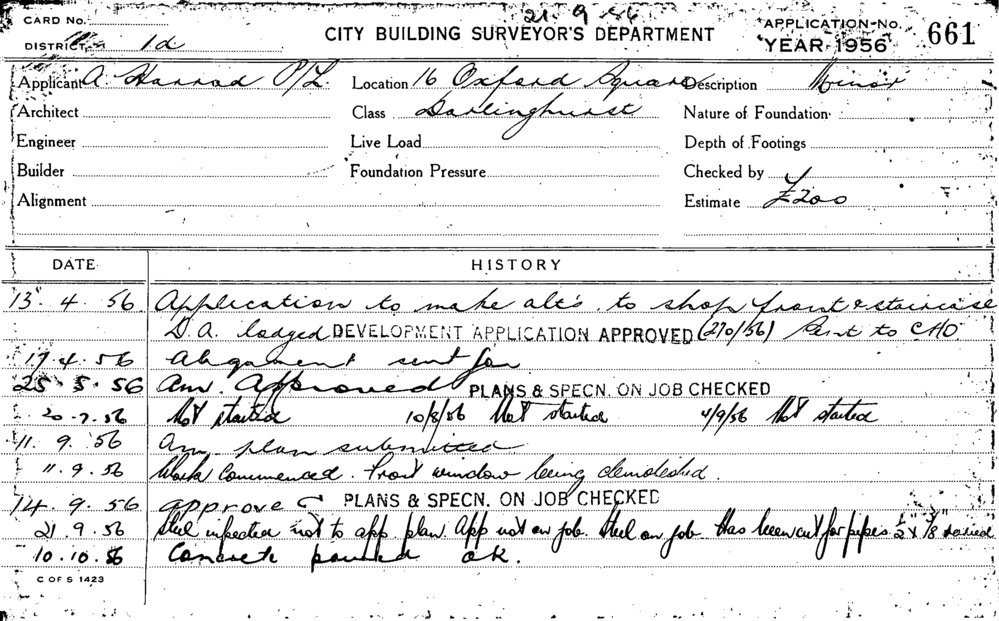 21.9.56
CARD No.
DISTRICT 1d
CITY BUILDING SURVEYOR'S DEPARTMENT
APPLICATION-No.
YEAR 1956
661
Applicant A Harrod P/L. Location 16 Oxford Square Description Minor
Architect Class Darlinghurst Nature of Foundation
Engineer Live Load Depth of Footings
Builder Foundation Pressure Checked by
Alignment Estimate £200
DATE HISTORY
13.4.56 Application to make alt's. to shop front & staircase
D.A. lodged DEVELOPMENT APPLICATION APPROVED (270/56) Sent to CHO.
17.4.56 Alignment sent for
25.5.56 Am. Approved PLANS & SPECN. ON JOB CHECKED
20.7.56 Not started 10/8/56 Not started 4/9/56 Not started
11.9.56 Am. plan submitted
11.9.56 Work Commenced. Front window being demolished.
14.9.56 approved PLANS & SPECN. ON JOB CHECKED
21.9.56 Steel inspected not to app. plan. App not on job. Steel on job. Has been cut for pipes 1/2 x
10.10.56 Concrete poured ok.
C OF S 1423